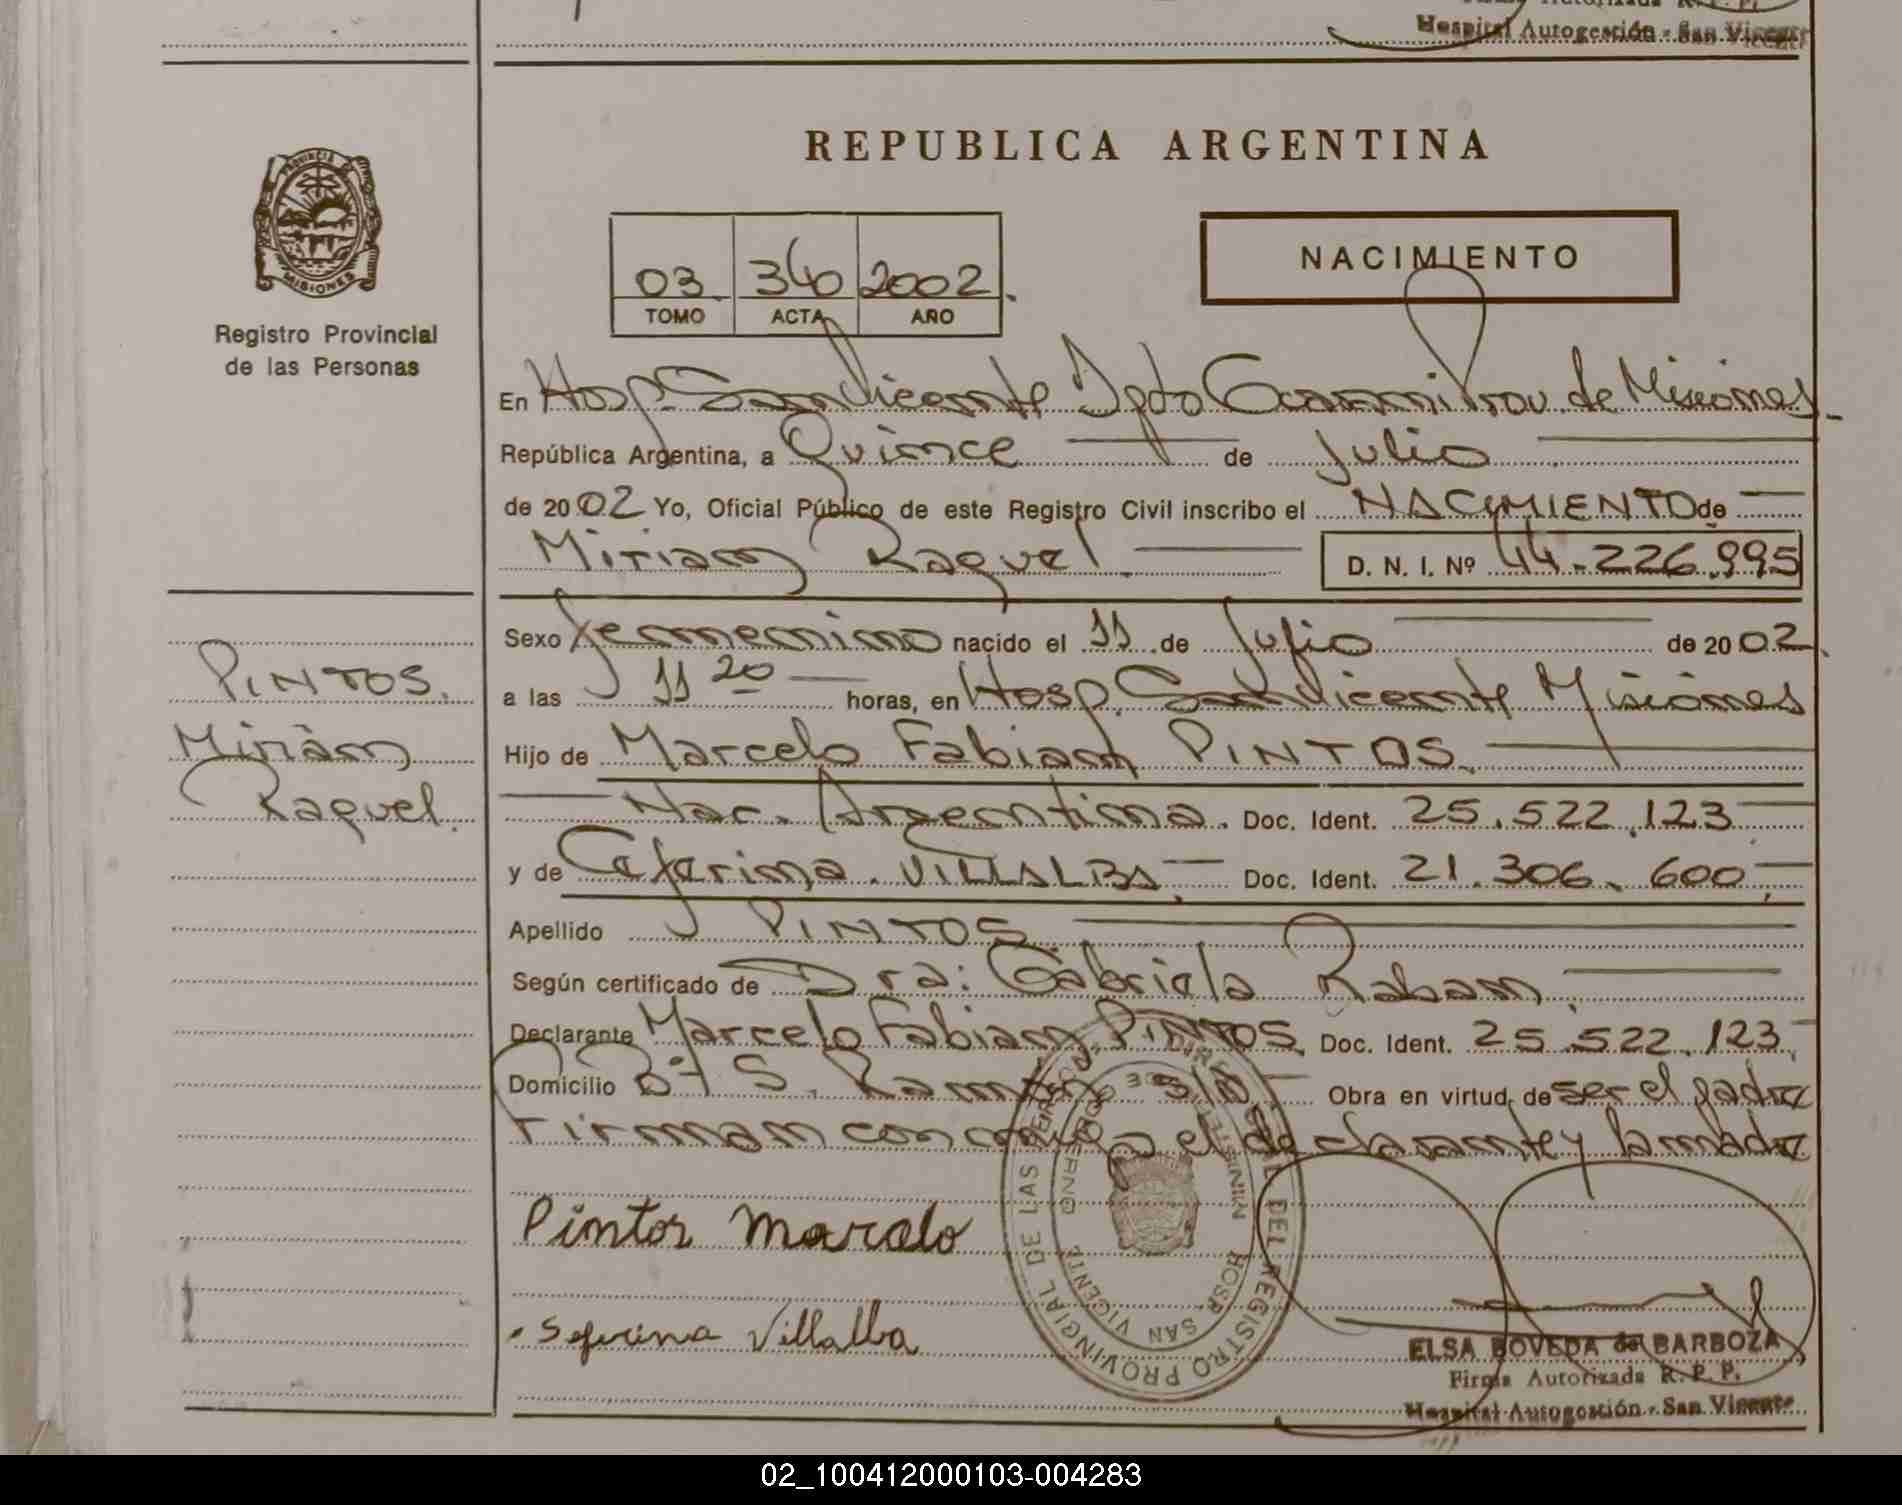 Hospital Autogestión - San Vicente
REPUBLICA ARGENTINA
PROVINCIA DE MISIONES
Registro Provincial
de las Personas
03 340 2002
TOMO ACTA AÑO
NACIMIENTO
En Hosp. San Vicente Dpto Guarani Prov. de Misiones
República Argentina, a Quince de Julio
de 2002 Yo, Oficial Público de este Registro Civil inscribo el NACIMIENTO de
Miriam Raquel D. N. I. Nº 44.226.995
Sexo femenino nacido el 11 de Julio de 2002
a las 11 20 horas, en Hosp. San Vicente Misiones
Hijo de Marcelo Fabian PINTOS
Nac. Argentina. Doc. Ident. 25.522.123
y de Ceferina VILLALBA Doc. Ident. 21.306.600
Apellido PINTOS
Según certificado de Dra: Gabriela Raban
Declarante Marcelo Fabian PINTOS Doc. Ident. 25.522.123
Domicilio Bº S. Ramon S/Nº Obra en virtud de ser el padre
Firman conmigo el declarante y la madre
PINTOS.
Miriam
Raquel.
Pintos Marcelo
Seferina Villalba
DEL REGISTRO PROVINCIAL DE LAS PERSONAS
HOSP. SAN VICENTE
ELSA BOVEDA de BARBOZA
Firma Autorizada R. P. P.
Hospital Autogestión - San Vicente
02_100412000103-004283